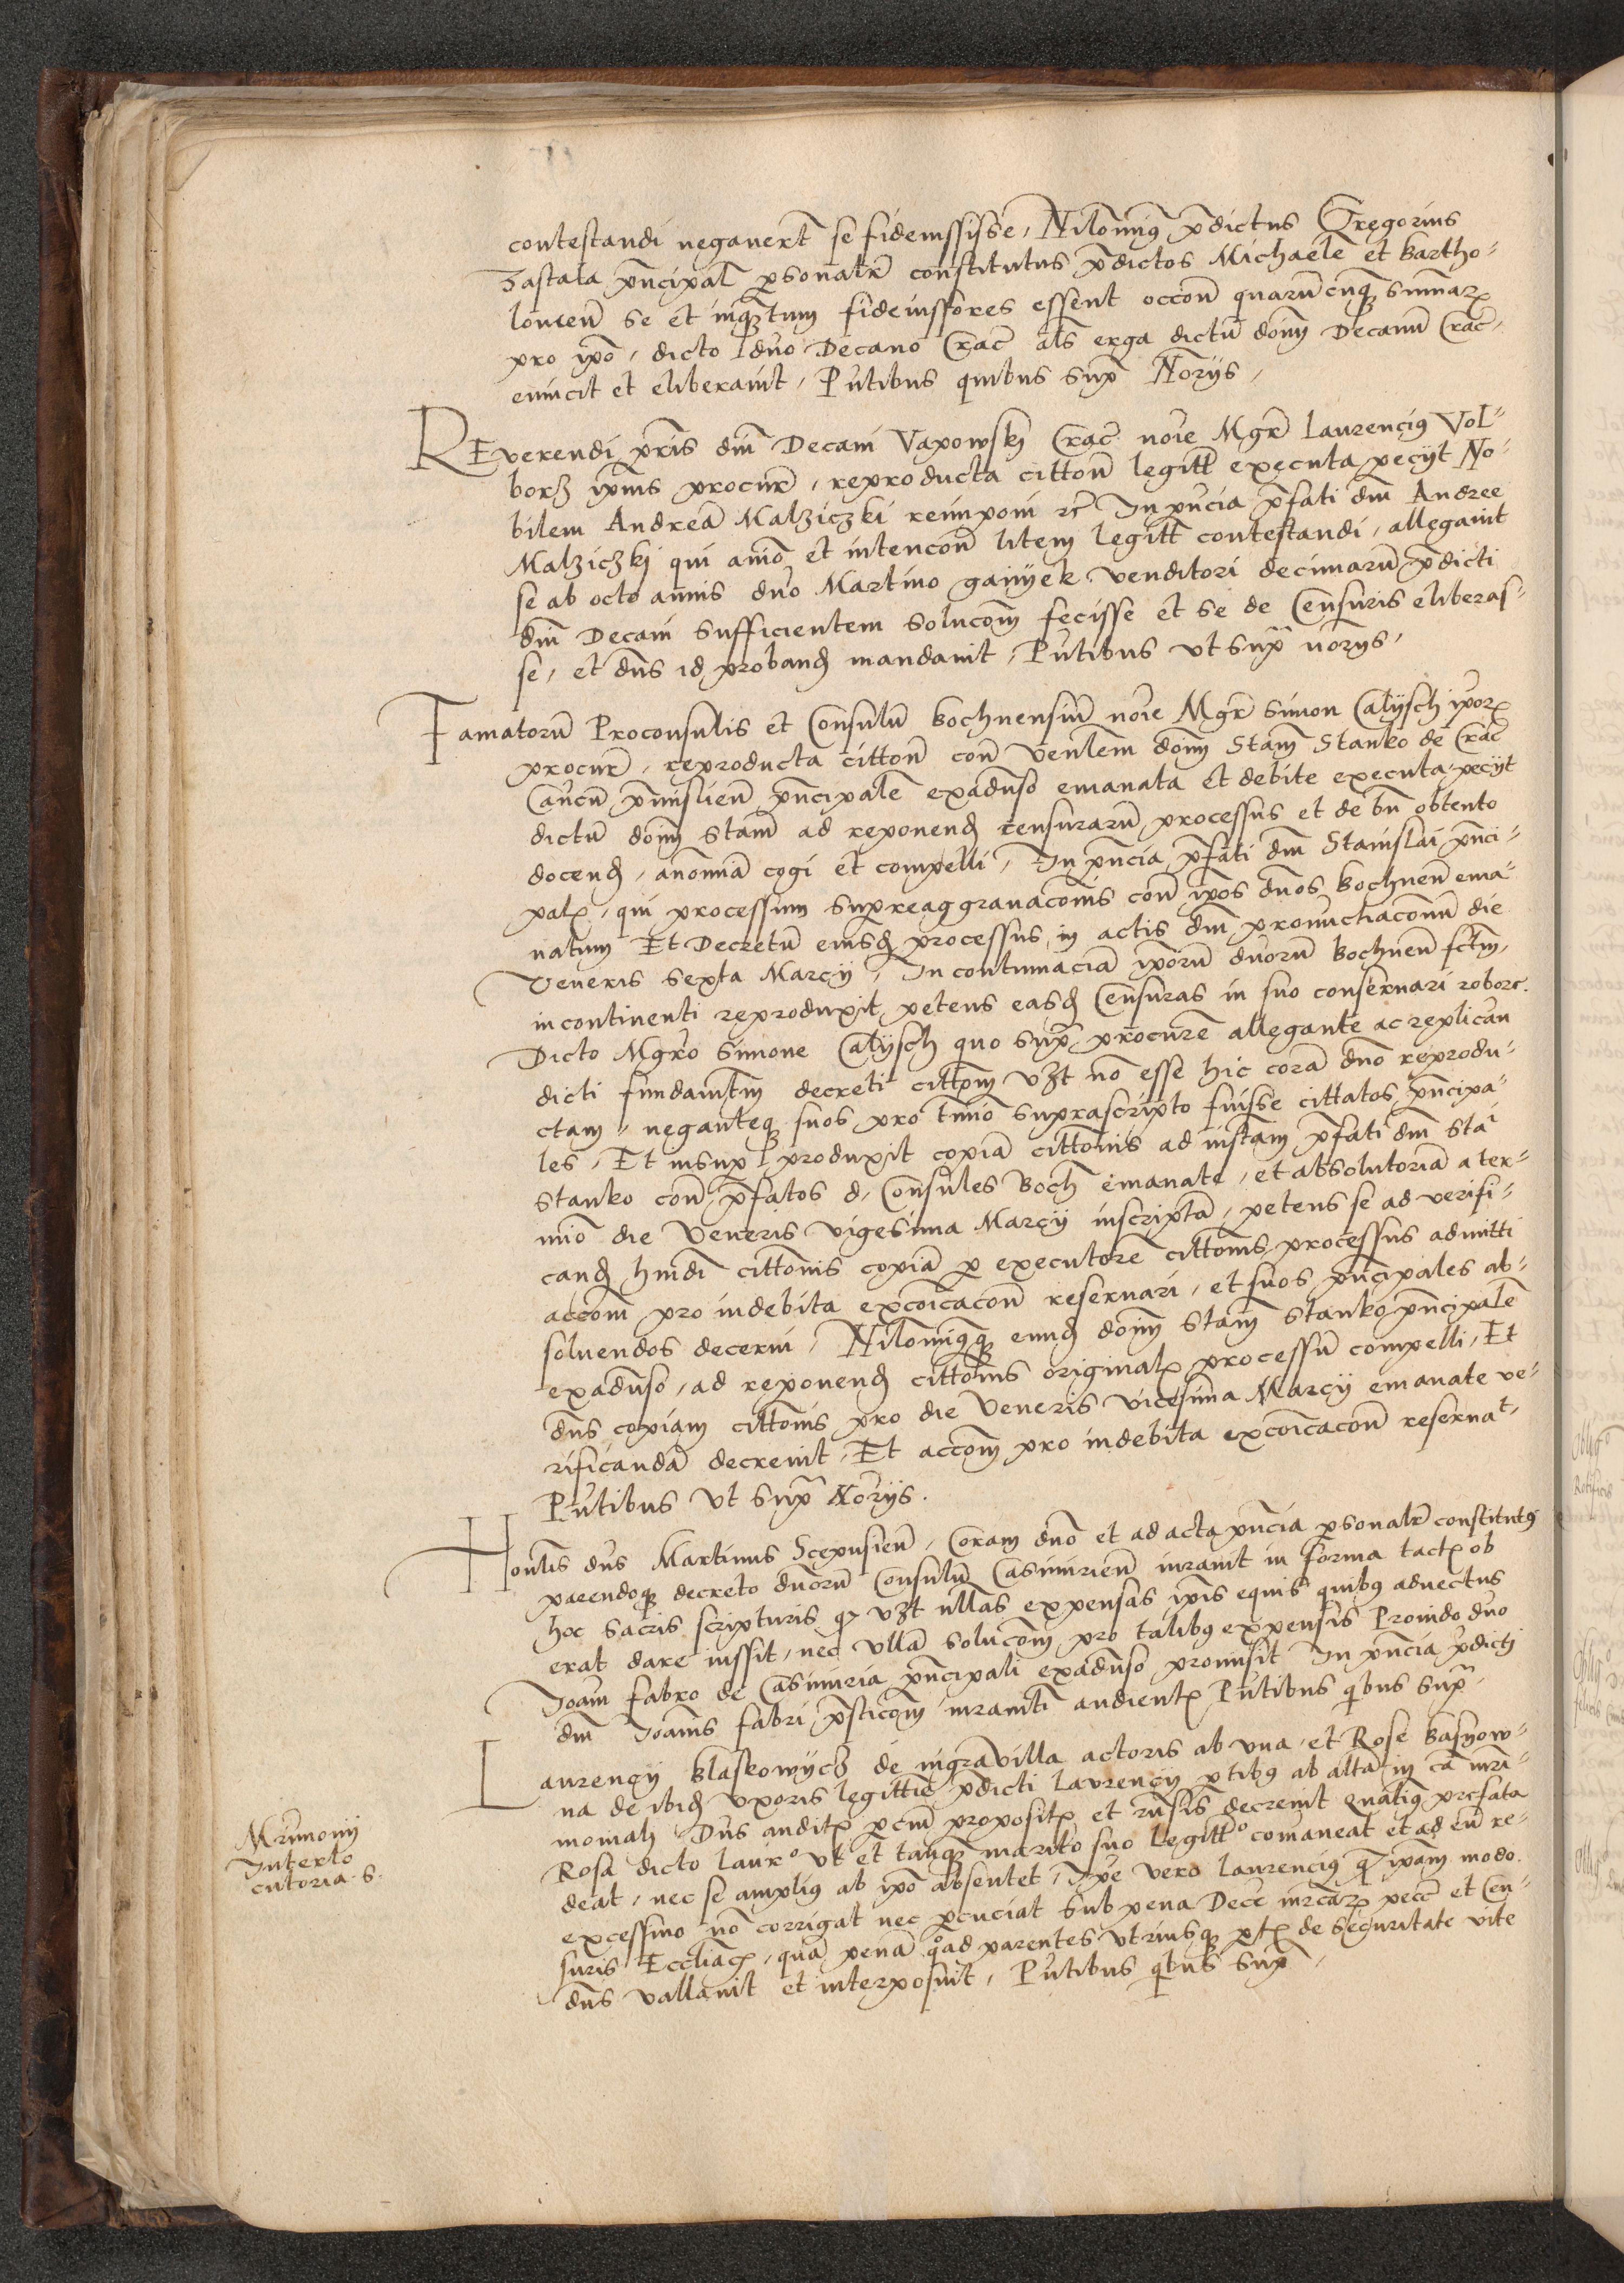 contestandi negauert se fideiussisse, Nilomiq pdictus Gregorius
Zastala pncipal psonalr constitutus pdictos Michaele et Bartho-
lomeu se et inqtum fideiussores essent occon quarucuq sumar
pro ipo, dicto dno Decano Crac als erga dictu dom Decanu Crac
euincit et eliberauit, Pntibus quibus sup Norijs,
REverendi pris dni Decani Vapowskj Crac noie Mgr Laurencius Vol-
borz ipius procur, reproducta cittone legitt executa pecijt No-
bilem Andrea Malziczki reimponi rc In pncia pfati dni Andree
Malziczkj qui anio et intencone litem legitt contestandi, allegauit
se ab octo annis dno Martino gaiyek venditori decimaru pdicti
dni Decani sufficientem solucom fecisse et se de Censuris eliberas-
se, et dns id proband mandauit, Pntibus vt sup norijs,
Famatoru Proconsulis et Consulu Bochnensiu noie Mgr Simon Calijsch ipor
procur, reproducta citton con Venlem dom Stam Stanko de Crac
Cancu pmislien pncipale exaduso emanata et debite executa pecijt
dictu dom Stam ad reponend censuraru processus et de bn obtento
docend, anomia cogi et compelli, In pncia pfati dni Stanislai pnci-
pal, qui processum supreaggrauaconis con ipos dnos Bochnen ema-
natum Et Decretu eiusd processus in actis dni pronucciaconu die
Veneris sexta Marcij, In contumacia iporu dnoru Bochnen fctm,
incontinenti reproduxit petens easd Censuras in suo conseruari robore.
Dicto Mgro Simone Calijsch quo sup procure allegante ac replican
dicti fundamtm decreti cittom vzt no esse hic cora dno reprodu-
ctam, neganteq suos pro tmio suprascripto fuisse cittatos pncipa-
les, Et insup produxit copia cittonis ad instam pfati dni Sta
Stanko con pfatos d. Consules Boch emanate, et absolutoria a ter-
mio die Veneris vigesima Marcij inscripta, petens se ad verifi-
cand hmdi cittonis copia p executore cittonis processus admitti
accom pro indebita excoicacon reseruari, et suos pncipales ab-
soluendos decerni, Nilomiqq eund dom Stam Stanko pncipale
exaduso, ad reponend cittonis original processu compelli, Et
dns copiam cittonis pro die Veneris vicesima Marcij emanate ve-
rificanda decreuit, Et accom pro indebita excoicacon reseruat,
Pntibus vt sup Norijs.
Honlis dns Martinus Scepusien, Coram dno et ad acta pncia psonalr constitutq
parendoq decreto dnoru Consulu Casimirien iurauit in forma tact ob
hoc sacris scripturis q vzt nllas expensas ipis equis quibq aduectus
erat dare iussit, nec vlla solucom pro talibq expensis Prouido dno
Joan fabro de Casimiria pncipali exaduso promisit In pncia pdicti
dni Joanis fabri psticom iuramti audient Pntibus qbus sup,
Laurencij Blaskowijcz de nigravilla actoris ab vna, et Rose Basyow-
na de ibid vxoris legittie pdicti Laurencij ptibq ab alta in ca mri-
moniali Dns audit pcm proposit et rnsis decreuit quatiq prefata
Rosa dicto Laurº vt et tanq marito suo legittº comaneat et ad eu re-
deat, nec se ampliq ab ipo absentet, Ipe vero Laurenciq q ipam modo
excessiuo no corrigat nec pcuciat sub pena Dece mrcar pecc et Cen-
suris Ecclia, qua pena qoad parentes vtriusq pt de securitate vite
dns vallauit et interposuit, Pntibus qbus sup,
Mrimonij
Interlo
cutoria. S.